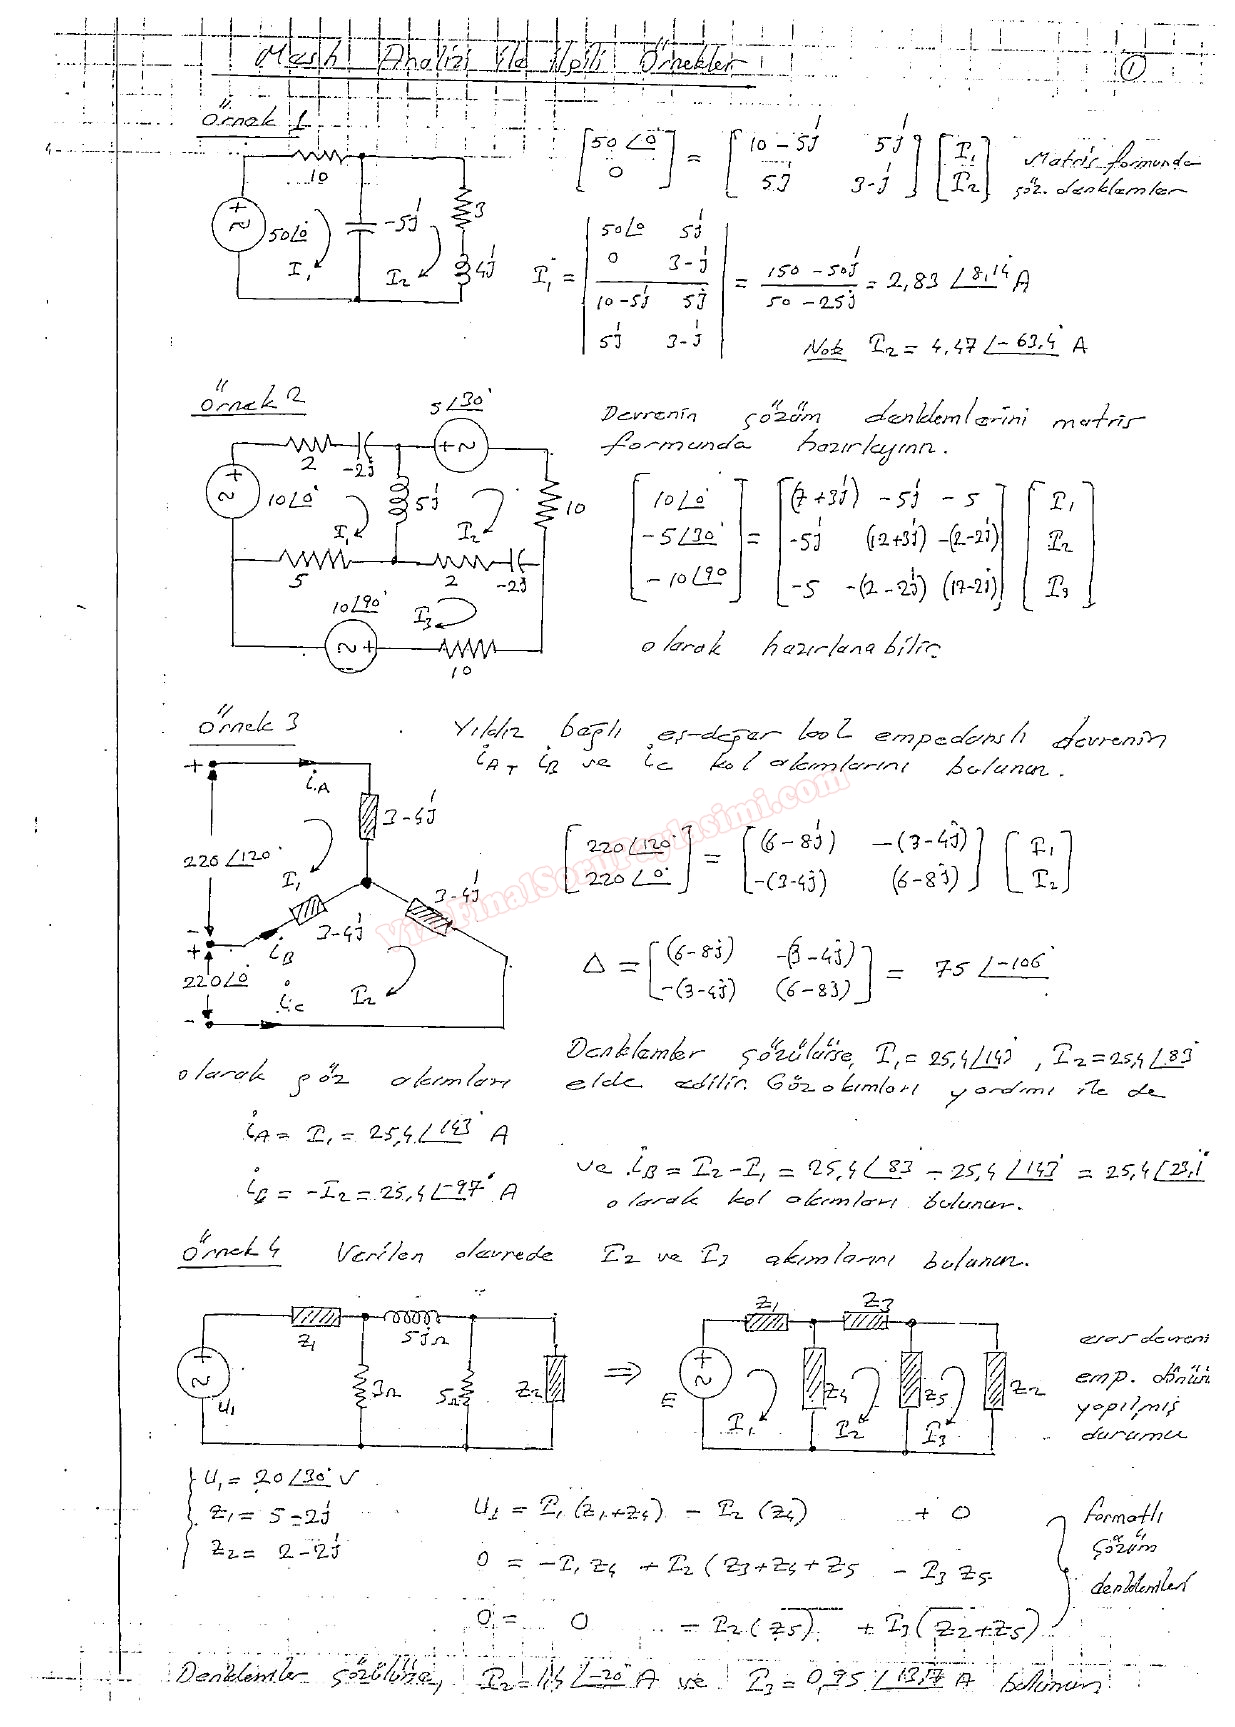 Mesh Analizi ile ilgili Örnekler
1
Örnek 1
10
50∠0°
I₁
-5j
I₂
3
4j
[50∠0° 0] = [10-5j 5j 5j 3-j] [I₁ I₂] Matris formunda
göz. denklemler
I₁ = |50∠0° 5j 0 3-j| / |10-5j 5j 5j 3-j| = 150-50j / 50-25j = 2,83∠8,14° A
Not: I₂ = 4,47∠-63,4° A
Örnek 2
5∠30°
2
-2j
10∠0°
I₁
5j
I₂
10
5
2
-2j
10∠90°
I₃
10
Devrenin çözüm denklemlerini matris
formunda hazırlayınız.
[10∠0° -5∠30° -10∠90] = [(7+3j) -5j -5
-5j (12+3j) -(2-2j)
-5 -(2-2j) (17-2j)] [I₁ I₂ I₃]
olarak hazırlanabilir.
Örnek 3
Yıldız bağlı eş-değer kol empedanslı devrenin
iA, iB ve iC kol akımlarını bulunuz.
iA
3-4j
220∠120°
I₁
3-4j
3-4j
iB
220∠0°
iC
I₂
[220∠120° 220∠0°] = [(6-8j) -(3-4j) -(3-4j) (6-8j)] [I₁ I₂]
Δ = [(6-8j) -(3-4j) -(3-4j) (6-8j)] = 75∠-106°
Denklemler çözülürse, I₁=25,4∠143°, I₂=25,4∠83°
olarak göz akımları elde edilir. Göz akımları yardımı ile de
iA = I₁ = 25,4∠143° A
ve iB = I₂-I₁ = 25,4∠83° - 25,4∠143° = 25,4∠23,1°
iC = -I₂ = 25,4∠-97° A
olarak kol akımları bulunur.
Örnek 4 Verilen devrede I₂ ve I₃ akımlarını bulunuz.
Z₁
5jΩ
U₁
3Ω
5Ω
Z₂
⇒
Z₁
Z₃
E
Z₄
Z₅
Z₂
I₁
I₂
I₃
esas devreni
emp. dönüş
yapılmış
durumu
U₁ = 20∠30° V
Z₁ = 5-2j
Z₂ = 2-2j
U₁ = I₁(Z₁+Z₄) - I₂(Z₄) + 0
0 = -I₁Z₄ + I₂(Z₃+Z₄+Z₅ - I₃Z₅
0 = 0 - I₂(Z₅) + I₃(Z₂+Z₅)
formatlı
çözüm
denklemleri
Denklemler çözülürse, I₂=1,4∠-20° A ve I₃=0,95∠13,17° A bulunur.
VizeFinalSoruPaylasimi.com